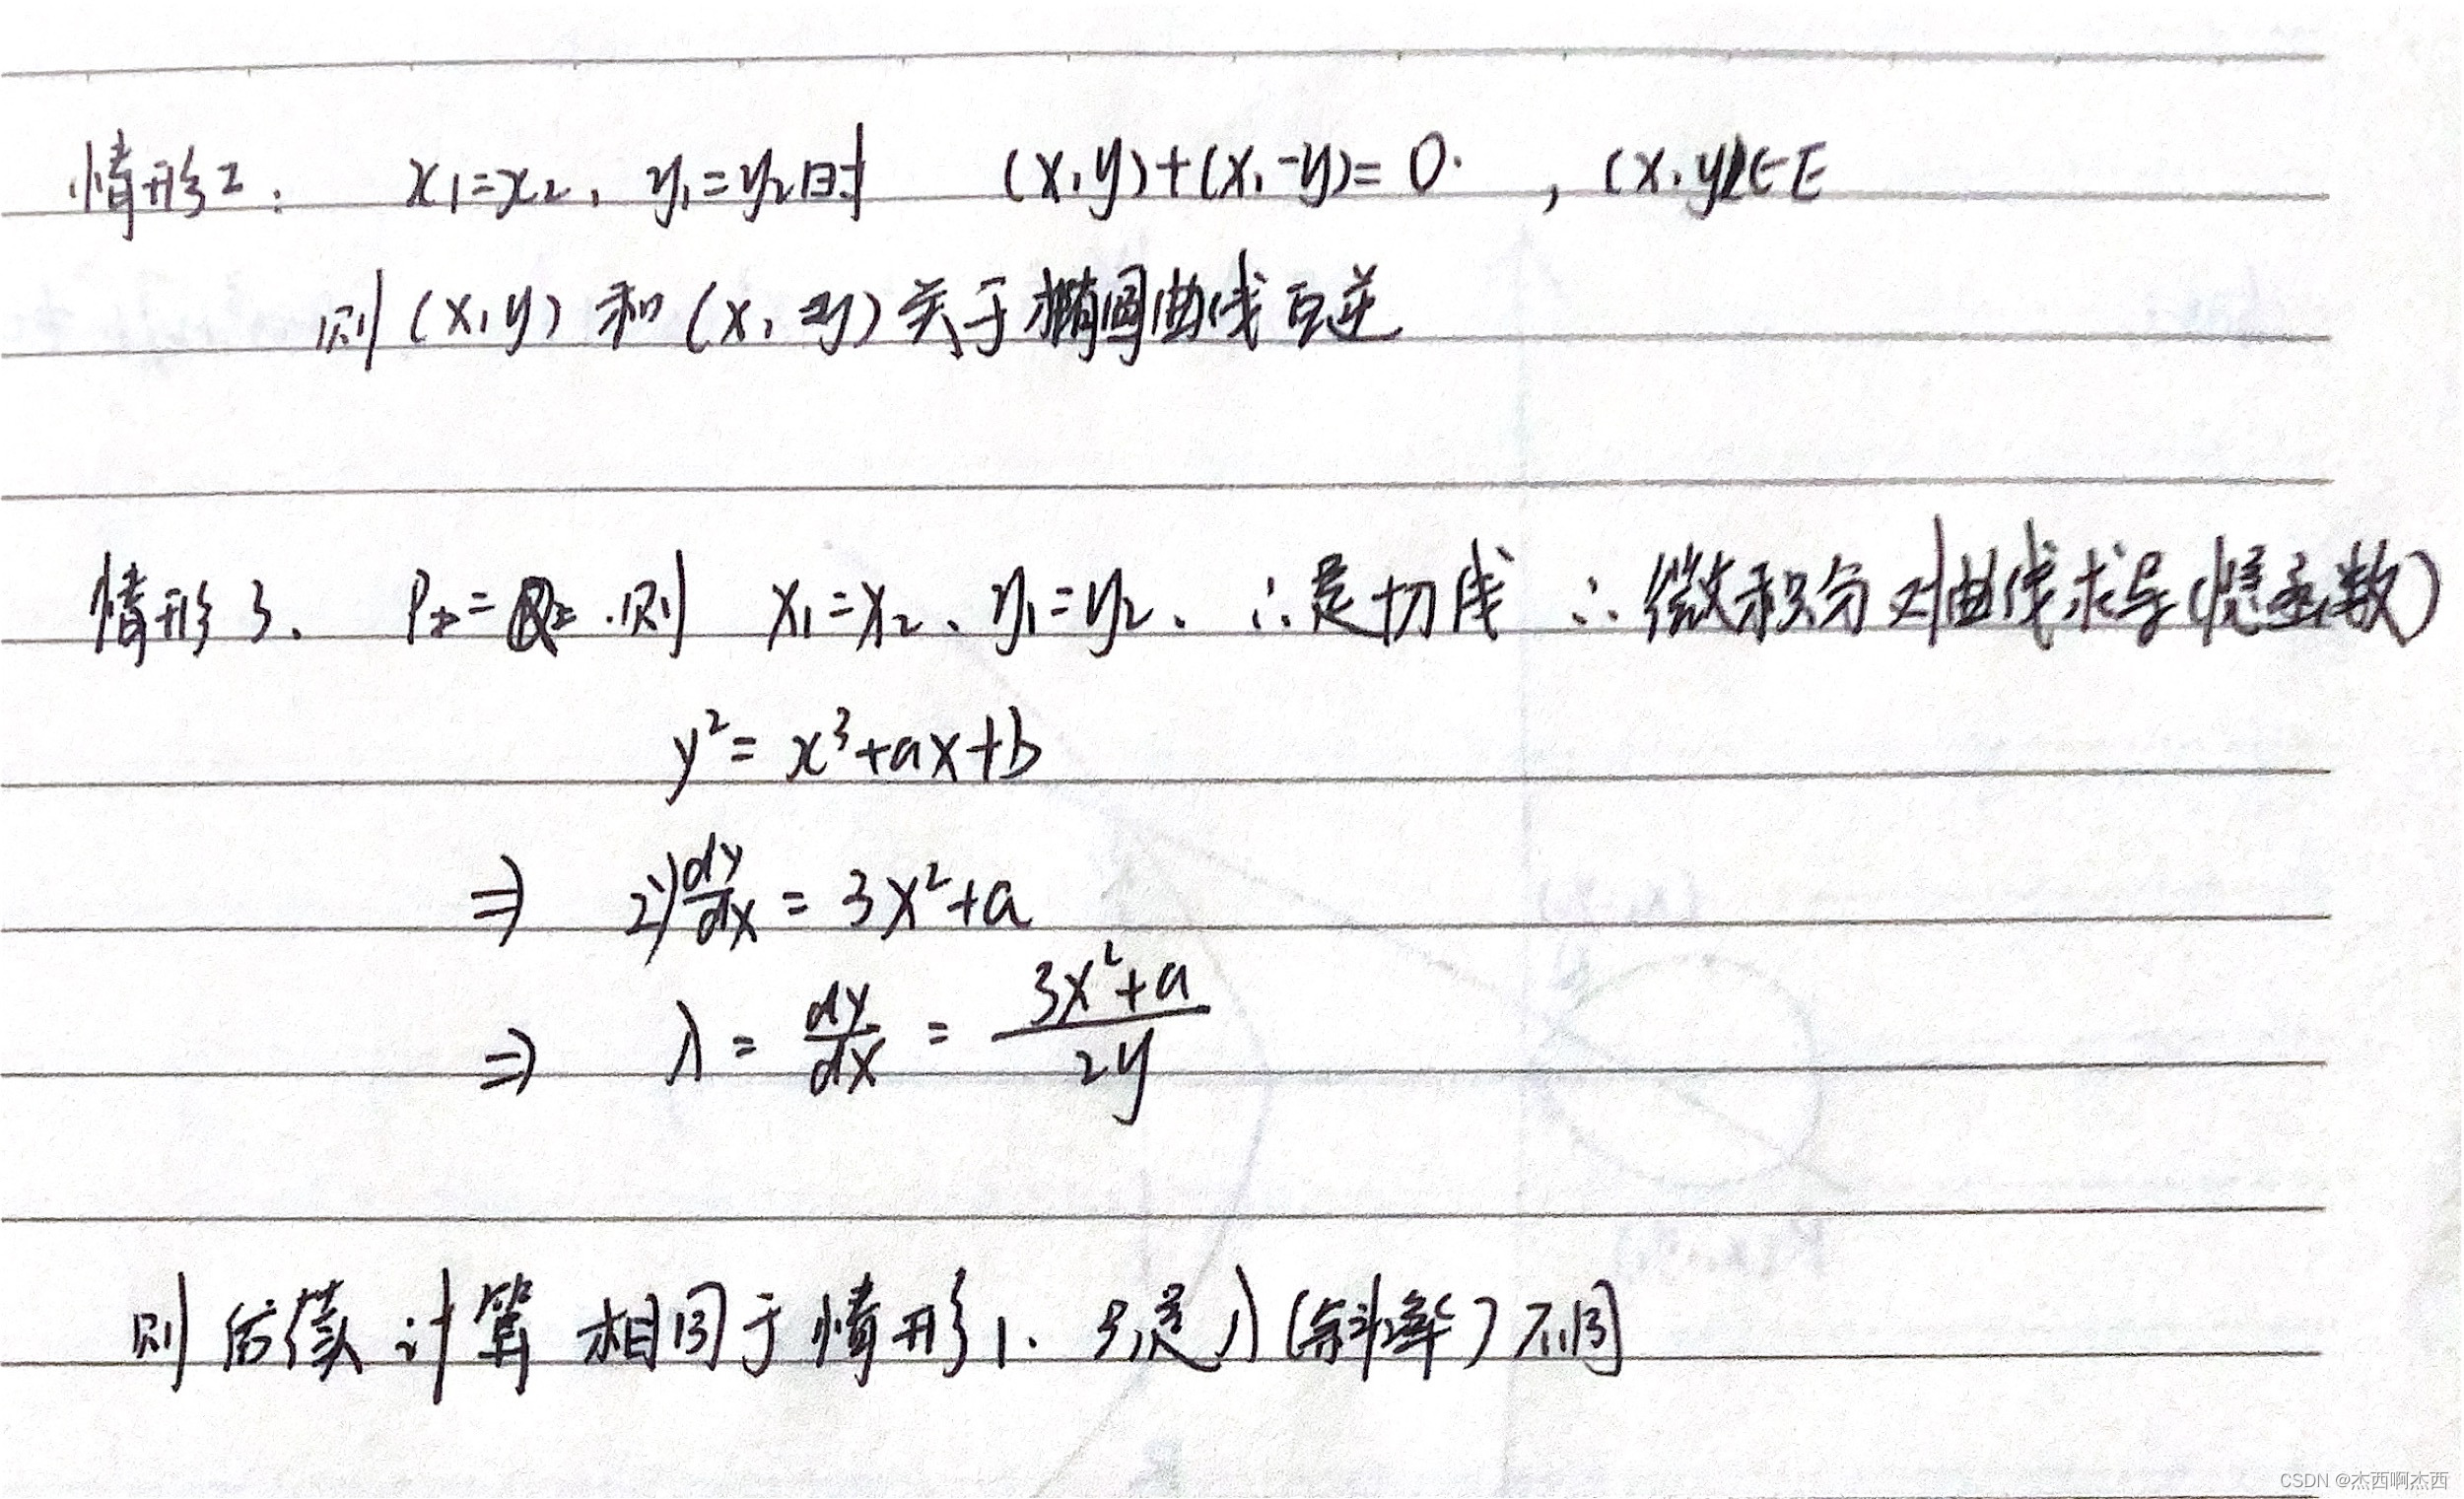 情形2: x₁=x₂, y₁=y₂时 (x,y)+(x,-y)=0. , (x,y)∈E
则 (x,y) 和 (x, -y) 关于椭圆曲线互逆
情形3. P=Q 则 x₁=x₂、y₁=y₂、∴是切线 ∴微积分对曲线求导(隐函数)
y²= x³+ax+b
⇒ 2y dy/dx = 3x²+a
⇒ λ = dy/dx = (3x²+a)/2y
则后续计算相同于情形1. 只是λ(斜率)不同
CSDN @杰西啊杰西